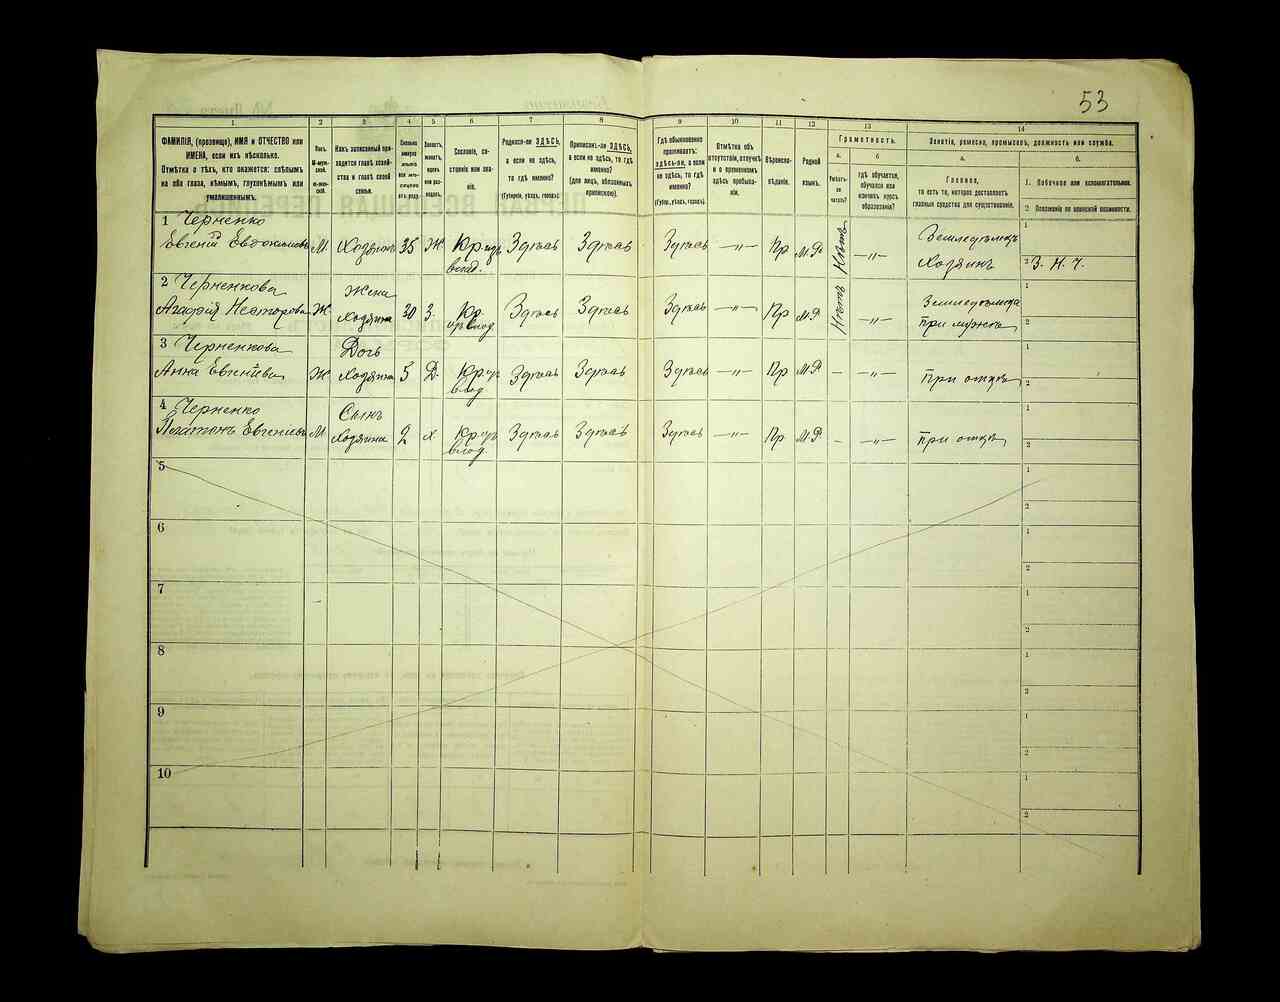 53
1 2 3 4 5 6 7 8 9 10 11 12 13 14
ФАМИЛІЯ, (прозвище), ИМЯ и ОТЧЕСТВО или ИМЕНА, если ихъ нѣсколько.
Отмѣтка о тѣхъ, кто окажется: слѣпымъ на оба глаза, нѣмымъ, глухонѣмымъ или умалишеннымъ.
Полъ.
М-муж-ской.
Ж-жен-скій.
Какъ записанный при-ходится главѣ хозяй-ства и главѣ своей семьи.
Сколько
Сословіе, со-стояніе или зва-ніе.
Родился-ли ЗДѢСЬ,
а если не здѣсь, то гдѣ именно?
(Губернія, уѣздъ, городъ).
Приписанъ-ли ЗДѢСЬ,
а если не здѣсь, то гдѣ именно?
(для лицъ, обязанныхъ припискою).
Гдѣ обыкновенно проживаетъ:
ЗДѢСЬ-ЛИ, а если не здѣсь, то гдѣ именно?
(Губер., уѣздъ, городъ).
Отмѣтка объ отсутствіи, отлучкѣ и о временномъ здѣсь пребыва-ніи.
Вѣроиспо-вѣданіе.
Родной языкъ.
Грамотность.
а. б.
Умѣетъ-ли читать?
гдѣ обучается, обучался или кончилъ курсъ образованія?
Занятіе, ремесло, промыселъ, должность или служба.
а. б.
Главное,
то есть то, которое доставляетъ главныя средства для существованія.
1. Побочное или вспомогательное.
2. Положеніе по воинской повинности.
1 Черненко
Евгеній Евдокимовъ М Хозяинъ 35 Ж Кр. Здѣсь Здѣсь Здѣсь —„— Пр М.Р. Нѣтъ —„— Земледѣлецъ
Хозяинъ 2 З. Н. Ч.
2 Черненкова Жена
Агафія Несторова Ж Хозяина 30 З. Кр. Здѣсь Здѣсь Здѣсь —„— Пр М.Р. Нѣтъ —„—
при мужѣ
3 Черненкова Дочь
Анна Евгеніева Ж Хозяина 5 Д. Кр. Здѣсь Здѣсь Здѣсь —„— Пр М.Р. - —„— При отцѣ
4 Черненко Сынъ
Платонъ Евгеніевъ М Хозяина 2 х Кр. Здѣсь Здѣсь Здѣсь —„— Пр М.Р. - —„— При отцѣ
5
6
7
8
9
10